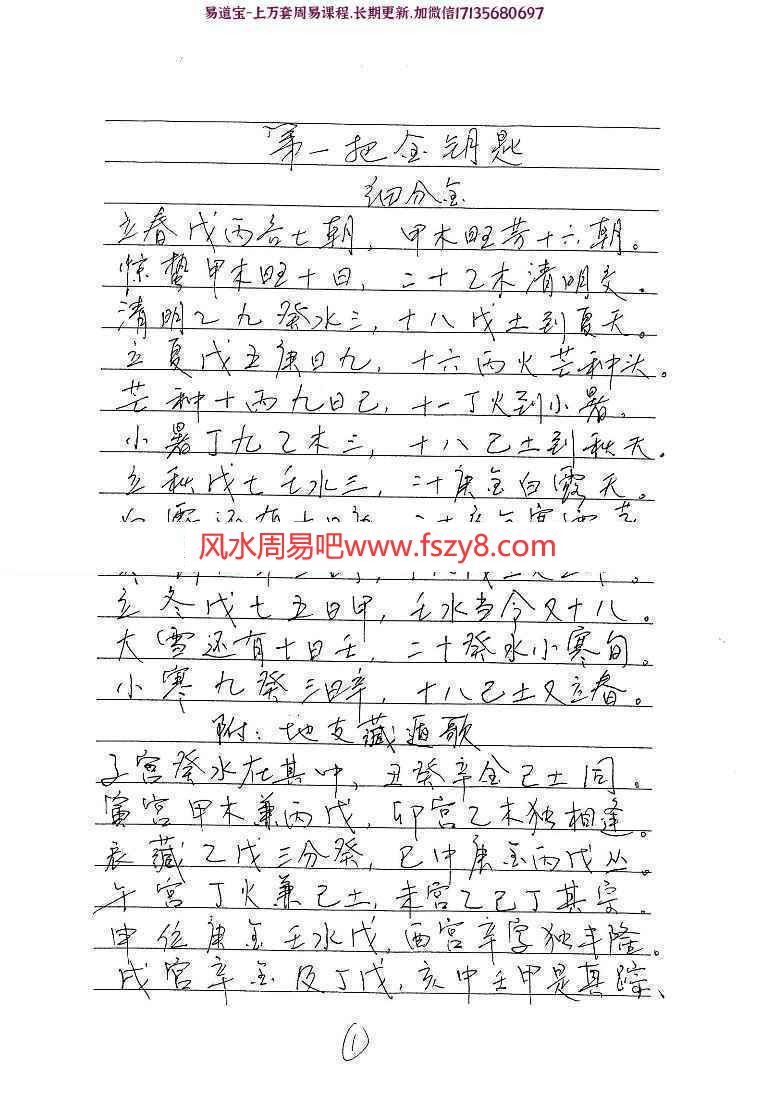 易道宝-上万套周易课程.长期更新.加微信17135680697
第一把金钥匙
细分金
立春戊丙各七朝，甲木旺芳十六朝。
惊蛰甲木旺十日，二十乙木清明交。
清明乙九癸水三，十八戊土到夏天。
立夏戊五庚日九，十六丙火芒种头。
芒种十丙九日己，十一丁火到小暑。
小暑丁九乙木三，十八己土到秋天。
立秋戊七壬水三，二十庚金白露天。
风水周易吧www.fszy8.com
立冬戊七五日甲，壬水当令又十八。
大雪还有十日壬，二十癸水小寒旬。
小寒九癸三日辛，十八己土又立春。
附：地支藏遁歌
子宫癸水在其中，丑癸辛金己土同。
寅宫甲木兼丙戊，卯宫乙木独相逢。
辰藏乙戊三分癸，巳中庚金丙戊丛。
午宫丁火兼己土，未宫乙己丁其字。
申位庚金壬水戊，酉宫辛字独丰隆。
戌宫辛金及丁戊，亥中壬甲是真踪、
1